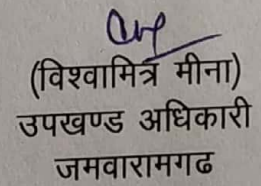 (विश्वामित्र मीना)
उपखण्ड अधिकारी
जमवारामगढ